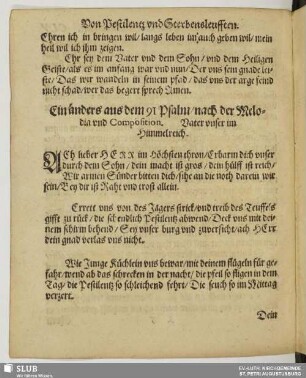 Von Pestilentz vnd Sterbensleufften.
Ehren ich in bringen wil/ langs leben im auch geben wil/ mein
heil wil ich ihm zeigen.
Ehr sey dem Vater vnd dem Sohn/ vnd dem Heiligen
Geiste/ als es im anfang war vnd nun/ Der vns sein gnade lei-
ste/ Das wir wandeln in seinem pfad/ das vns der arge feind
nicht schad/ wer das begert sprech Amen.
Ein anders aus dem 91 Psalm/ nach der Melo-
dia vnd Composition. Vater vnser im
Himmelreich.
ACh lieber HERR im Höchsten thron/ Erbarm dich vnser
durch dein Sohn/ dein macht ist gros/ dein hülff ist reich/
Wir armen Sünder bitten dich/ sihe an die noth darein wir
sein/ Bey dir ist Raht vnd trost allein.
Errett vns von des Jägers strick/ vnd treib des Teuffels
gifft zu rück/ die schendlich Pestilentz abwend/ Deck vns mit dei-
nem schirm behend/ Sey vnser burg vnd zuversicht/ ach HErr
dein gnad verlas vns nicht.
Wie Junge Küchlein vns bewar/ mit deinem flügeln für ge-
fahr/ wend ab das schrecken in der nacht/ die pfeil so fligen in dem
Tag/ die Pestilentz so schleichend fehrt/ Die seuch so im Mittag
verzert.
Dein
SLUB
Wir führen Wissen.
EV.-LUTH. KIRCHGEMEINDE
ST. PETRI AUGUSTUSBURG